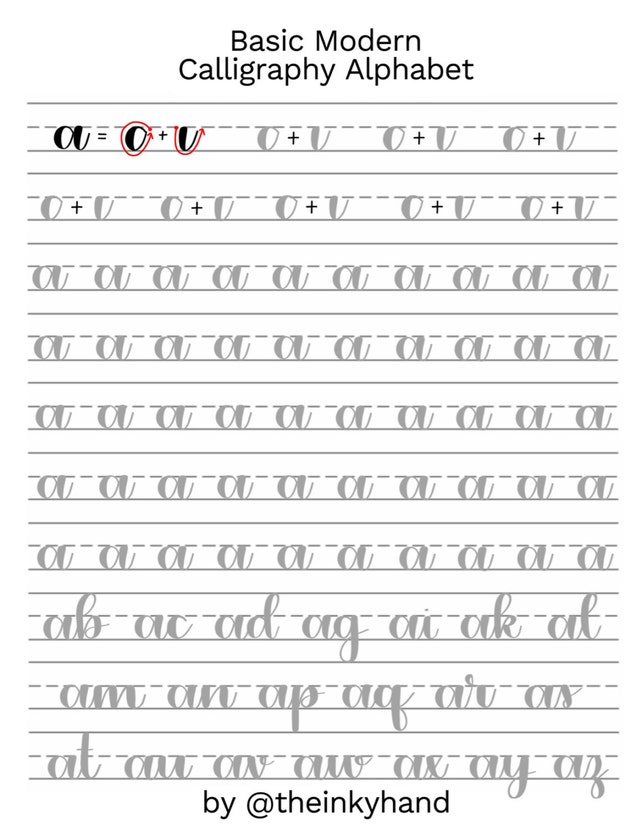 Basic Modern
Calligraphy Alphabet
a = o + v o + v o + v o + v
o + v o + v o + v o + v o + v
a a a a a a a a a a
a a a a a a a a a a
a a a a a a a a a a
a a a a a a a a a a
a a a a a a a a a a
ab ac ad ag ai ak al
am an ap aq ar as
at au av aw ax ay az
by @theinkyhand